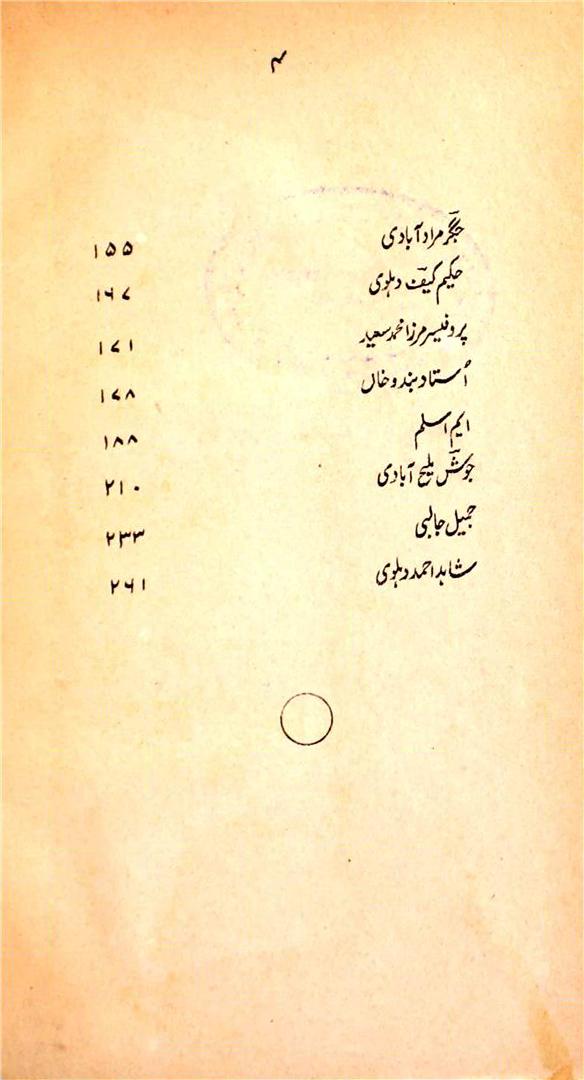 ۴
جگرؔ مراد آبادی ۱۵۵
حکیم کیفؔ دہلوی ۱۶۷
پروفیسر مرزا محمد سعید ۱۷۱
اُستاد بندو خاں ۱۷۸
ایم اسلم ۱۸۸
جوشؔ ملیح آبادی ۲۱۰
جمیل جالبی ۲۳۳
شاہد احمد دہلوی ۲۶۱